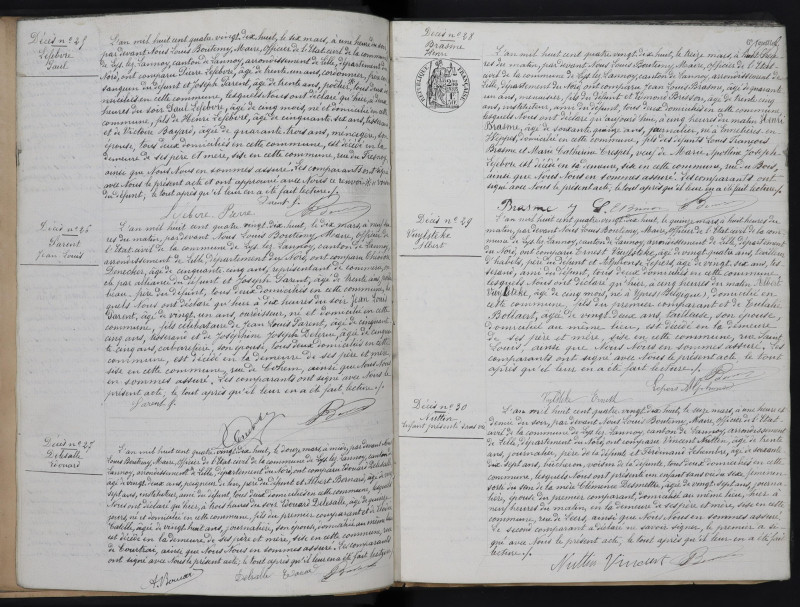 Décès n° 25
Lefebvre
Paul
L'an mil huit cent quatre vingt dix huit, le six mars, à une heure du soir
par devant Nous Louis Boutemy, Maire, officier de l'État civil de la commune
de Lys lez Lannoy, canton de Lannoy, arrondissement de Lille, département du
Nord, ont comparu Pierre Lefebvre, âgé de trente ans, cordonnier, frère
sanguin du défunt et Joseph Parent, âgé de trente ans, poëlier, tous deux do-
miciliés en cette commune, lesquels Nous ont déclaré qu'hier à deux
heures du soir Paul Lefebvre, âgé de cinq mois, né et domicilié en cette
commune, fils de Henri Lefebvre, âgé de cinquante six ans, tisserand
et de Victoire Bayart, âgée de quarante trois ans, ménagère, son
épouse, tous deux domiciliés en cette commune, est décédé en la
demeure de ses père et mère, sise en cette commune, rue du Fresnoy,
ainsi que Nous Nous en sommes assuré. Les comparants ont signé
avec Nous le présent acte et ont approuvé avec Nous ce renvoi
du défunt, le tout après qu'il leur en a été fait lecture.
Parent J.
Lefebvre Pierre
Décès n° 26
Parent
Jean Louis
L'an mil huit cent quatre vingt dix huit, le neuf mars, à neuf heu-
res du matin, par devant Nous Louis Boutemy, Maire, officier de
l'État civil de la commune de Lys lez Lannoy, canton de Lannoy,
arrondissement de Lille, département du Nord, ont comparu
Denecker, âgé de cinquante cinq ans, représentant de commerce,
par alliance du défunt et Joseph Parent, âgé de trente ans,
frère du défunt, tous deux domiciliés en cette commune, les-
quels Nous ont déclaré qu'hier à dix heures du soir Jean Louis
Parent, âgé de vingt un ans, ourdisseur, né et domicilié en cette
commune, fils célibataire de Jean Louis Parent, âgé de cinquante
cinq ans, tisserand et de Joséphine Joseph, âgée de
cinq ans, cabaretière, son épouse, tous deux domiciliés en cette
commune, est décédé en la demeure de ses père et mère,
sise en cette commune, rue de Lohem, ainsi que Nous Nous en
sommes assuré. Les comparants ont signé avec Nous le présent
acte, le tout après qu'il leur en a été fait lecture.
Parent J.
Décès n° 27
Delsalle
Édouard
L'an mil huit cent quatre vingt dix huit, le douze mars, à midi, par devant Nous
Louis Boutemy, Maire, officier de l'État civil de la commune de Lys lez Lannoy, canton de
Lannoy, arrondissement de Lille, département du Nord, ont comparu Édouard Delsalle,
âgé de vingt deux ans, peigneur de lin, père du défunt et Albert Bernard, âgé de vingt
sept ans, instituteur, ami du défunt, tous deux domiciliés en cette commune, lesquels
Nous ont déclaré qu'hier, à trois heures du soir Édouard Delsalle, âgé de quinze
jours, né et domicilié en cette commune, fils du premier comparant et de
âgée de vingt huit ans, journalière, son épouse, domiciliée au même lieu,
est décédé en la demeure de ses père et mère, sise en cette commune, rue
de Courtrai, ainsi que Nous Nous en sommes assuré. Les comparants
ont signé avec Nous le présent acte, le tout après qu'il leur en a été fait lecture.
Delsalle Edouard
Décès n° 28
Brasme
Henri
RÉPUBLIQUE FRANÇAISE
L'an mil huit cent quatre vingt dix huit, le treize mars, à huit heu-
res du matin, par devant Nous Louis Boutemy, Maire, officier de l'État
civil de la commune de Lys lez Lannoy, canton de Lannoy, arrondissement de
Lille, département du Nord, ont comparu Jean Louis Brasme, âgé de quarante
un ans, menuisier, fils du défunt et Léonard Brisson, âgé de trente cinq
ans, instituteur, ami du défunt, tous deux domiciliés en cette commune,
lesquels Nous ont déclaré qu'aujourd'hui, à cinq heures du matin Henri
Brasme, âgé de soixante quinze ans, journalier, né à Annetières en
Weppes, domicilié en cette commune, fils des défunts Louis François
Brasme et Marie Catherine Crespel, veuf de Marie Apolline Joseph
Lefebvre est décédé en sa demeure, sise en cette commune, rue du Bois,
ainsi que Nous Nous en sommes assuré. Les comparants ont
signé avec Nous le présent acte, le tout après qu'il leur en a été fait lecture.
Brasme J
Décès n° 29
Vuylsteke
Albert
L'an mil huit cent quatre vingt dix huit, le quinze mars, à huit heures du
matin, par devant Nous Louis Boutemy, Maire, officier de l'État civil de la com-
mune de Lys lez Lannoy, canton de Lannoy, arrondissement de Lille, département
du Nord, ont comparu Ernest Vuylsteke, âgé de vingt quatre ans, tailleur
d'habits, père du défunt et Alphonse Lepers, âgé de vingt six ans, tis-
serand, ami du défunt, tous deux domiciliés en cette commune,
lesquels Nous ont déclaré qu'hier, à cinq heures du matin Albert
Vuylsteke, âgé de cinq mois, né à Ypres (Belgique), domicilié en
cette commune, fils du premier comparant et de
Bollaert, âgée de vingt deux ans, tailleuse, son épouse,
domiciliée au même lieu, est décédé en la demeure
de ses père et mère, sise en cette commune, rue Saint
Louis, ainsi que Nous Nous en sommes assuré. Les
comparants ont signé avec Nous le présent acte, le tout
après qu'il leur en a été fait lecture.
Lepers Alphonse
Vuylsteke Ernest
Décès n° 30
Nuttin
Enfant présenté sans vie
L'an mil huit cent quatre vingt dix huit, le seize mars, à une heure et
demie du soir, par devant Nous Louis Boutemy, Maire, officier de l'État
civil de la commune de Lys lez Lannoy, canton de Lannoy, arrondissement
de Lille, département du Nord, ont comparu Vincent Nuttin, âgé de trente
ans, journalier, père de l'enfant et Ferdinand Delcambre, âgé de soixante
dix sept ans, bûcheron, voisin du défunt, tous deux domiciliés en cette
commune, lesquels Nous ont présenté un enfant sans vie du sexe féminin,
sortie du sein de la mère Clémence Desmettre, âgée de vingt sept ans, journa-
lière, épouse du premier comparant, domiciliée au même lieu, hier à
neuf heures du matin, en la demeure de ses père et mère, sise en cette
commune, rue de Leers, ainsi que Nous Nous en sommes assuré.
Le second comparant a déclaré ne savoir signer, le premier a si-
gné avec Nous le présent acte, le tout après qu'il leur en a été fait
lecture.
Nuttin Vincent